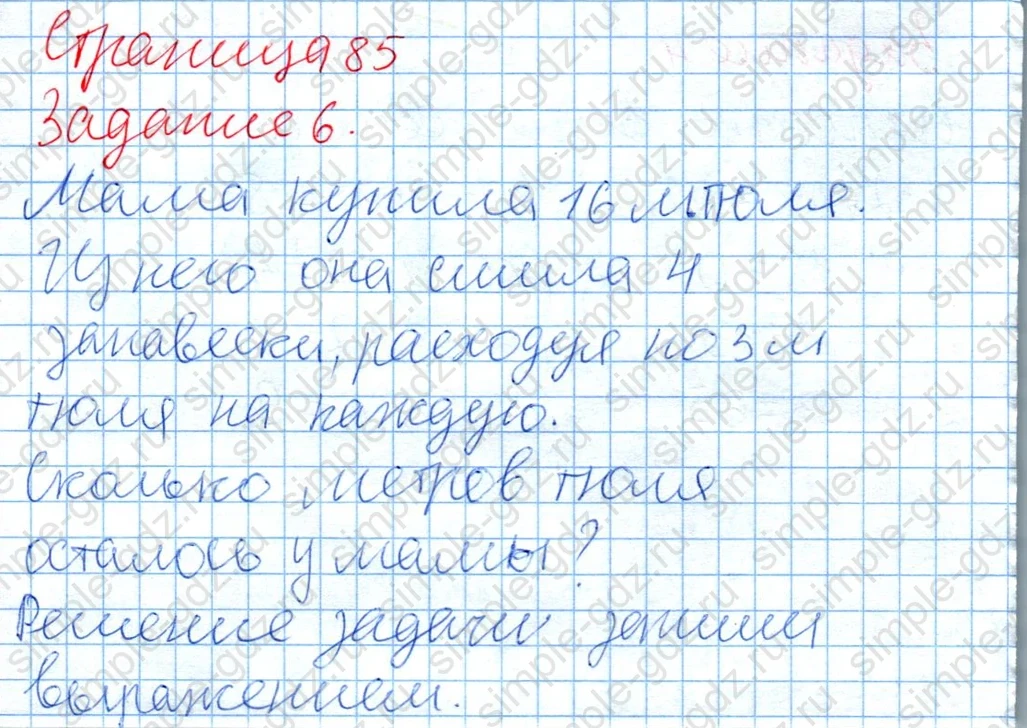 Страница 85
Задание 6.
Мама купила 16 м тюля.
Из него она сшила 4
занавески, расходуя по 3 м
тюля на каждую.
Сколько метров тюля
осталось у мамы?
Решение задачи запиши
выражением.
simple-gdz.ru